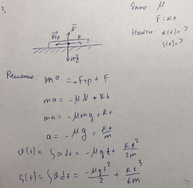 3.
Дано: μ
F = kt
Найти: v(t) = ?
S(t) = ?
N
Fтр
F
mg
Решение:
ma = -Fтр + F
ma = -μN + kt
ma = -μmg + kt
a = -μg + kt/m
v(t) = ∫a dt = -μgt + kt²/2m
S(t) = ∫v dt = -μgt²/2 + kt³/6m